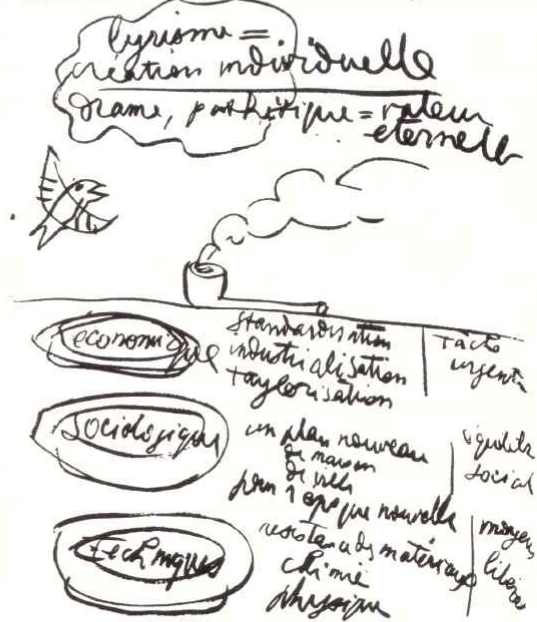 lyrisme =
création individuelle
drame, pathétique = valeur
éternelle
economique
standardisation
industrialisation
taylorisation
tâche
urgente
Sociologique
un plan nouveau
de maison
de ville
pour 1 epoque nouvelle
équilibre
social
techniques
resistance des matériaux
chimie
physique
moyens